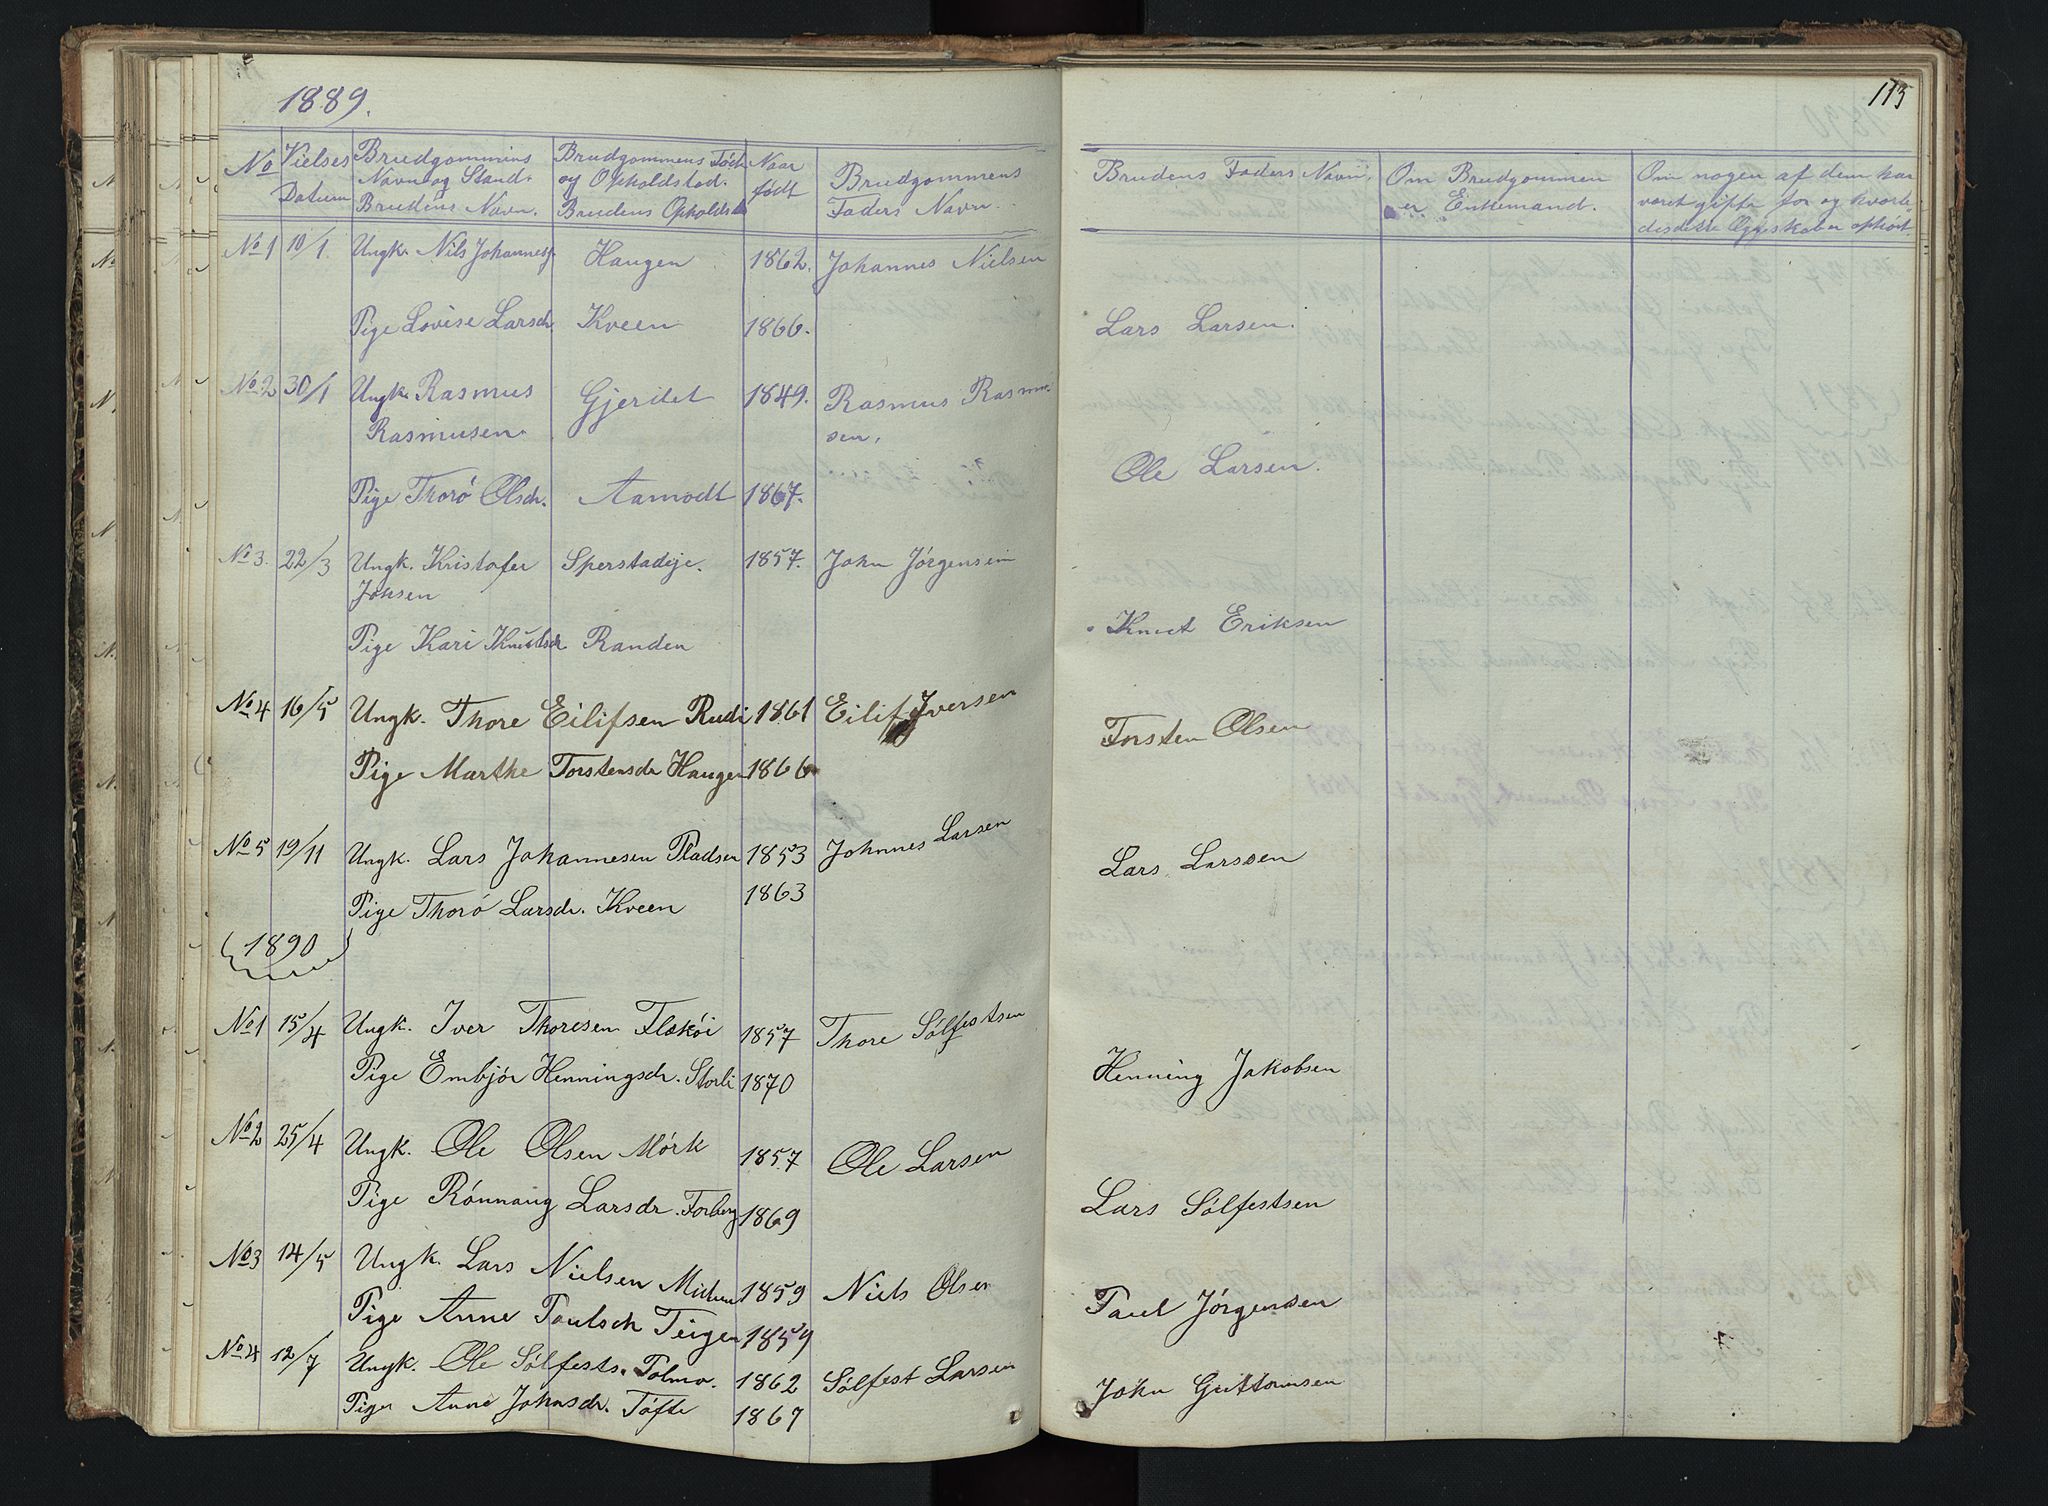 113
1889.
No
Vielses Datum
Brudgommens Navn og Stand. Brudens Navn.
Brudgommens Føde og Opholdstad. Brudens Opholdst.
Naar født
Brudgommens Faders Navn.
Brudens Faders Navn.
Om Brudgommen er Enkemand.
Om nogen af dem har været gifte før og hvorledes dette Ægteskab er ophørt.
No 1 10/1 Ungk. Nils Johanness. Haugen 1862. Johannes Nielsen
Pige Lovise Larsdr. Kveen 1866. Lars Larsen.
No 2 30/1 Ungk. Rasmus Gjerdet 1849. Rasmus Rasmu-
Rasmusen. sen.
Pige Thorø Olsdr. Aamodt 1867. Ole Larsen.
No 3. 22/3 Ungk. Kristofer Sperstadeje. 1857. John Jørgensen
Johsen
Pige Kari Knutsdr Randen Knut Eriksen
No 4 16/5 Ungk. Thore Eilifsen Rudi 1861 Eilif Iversen
Pige Marthe Torstensdr Haugen 1866 Torsten Olsen
No 5 19/11 Ungk. Lars Johannesen Pladsen 1853 Johnnes Larsen
Pige Thorø Larsdr. Kveen 1863 Lars Larssen
1890
No 1 15/4 Ungk. Iver Thoresen Flskøi 1857 Thore Sølfestsen
Pige Embjør Henningsdr. Storli 1870 Henning Jakobsen
No 2 25/4 Ungk. Ole Olsen Mørk 1857 Ole Larsen
Pige Rønnaug Larsdr. Forberg 1869 Lars Sølfestsen
No 3 14/5 Ungk. Lars Nielsen 1859 Niels Olsen
Pige Anne Paulsdr Teigen 1859 Paul Jørgensen
No 4 12/7 Ungk. Ole Sølfests. Tolmo. 1862 Sølfest Larsen
Pige Anne Johnsdr. Tøfte 1867 John Guttormsen